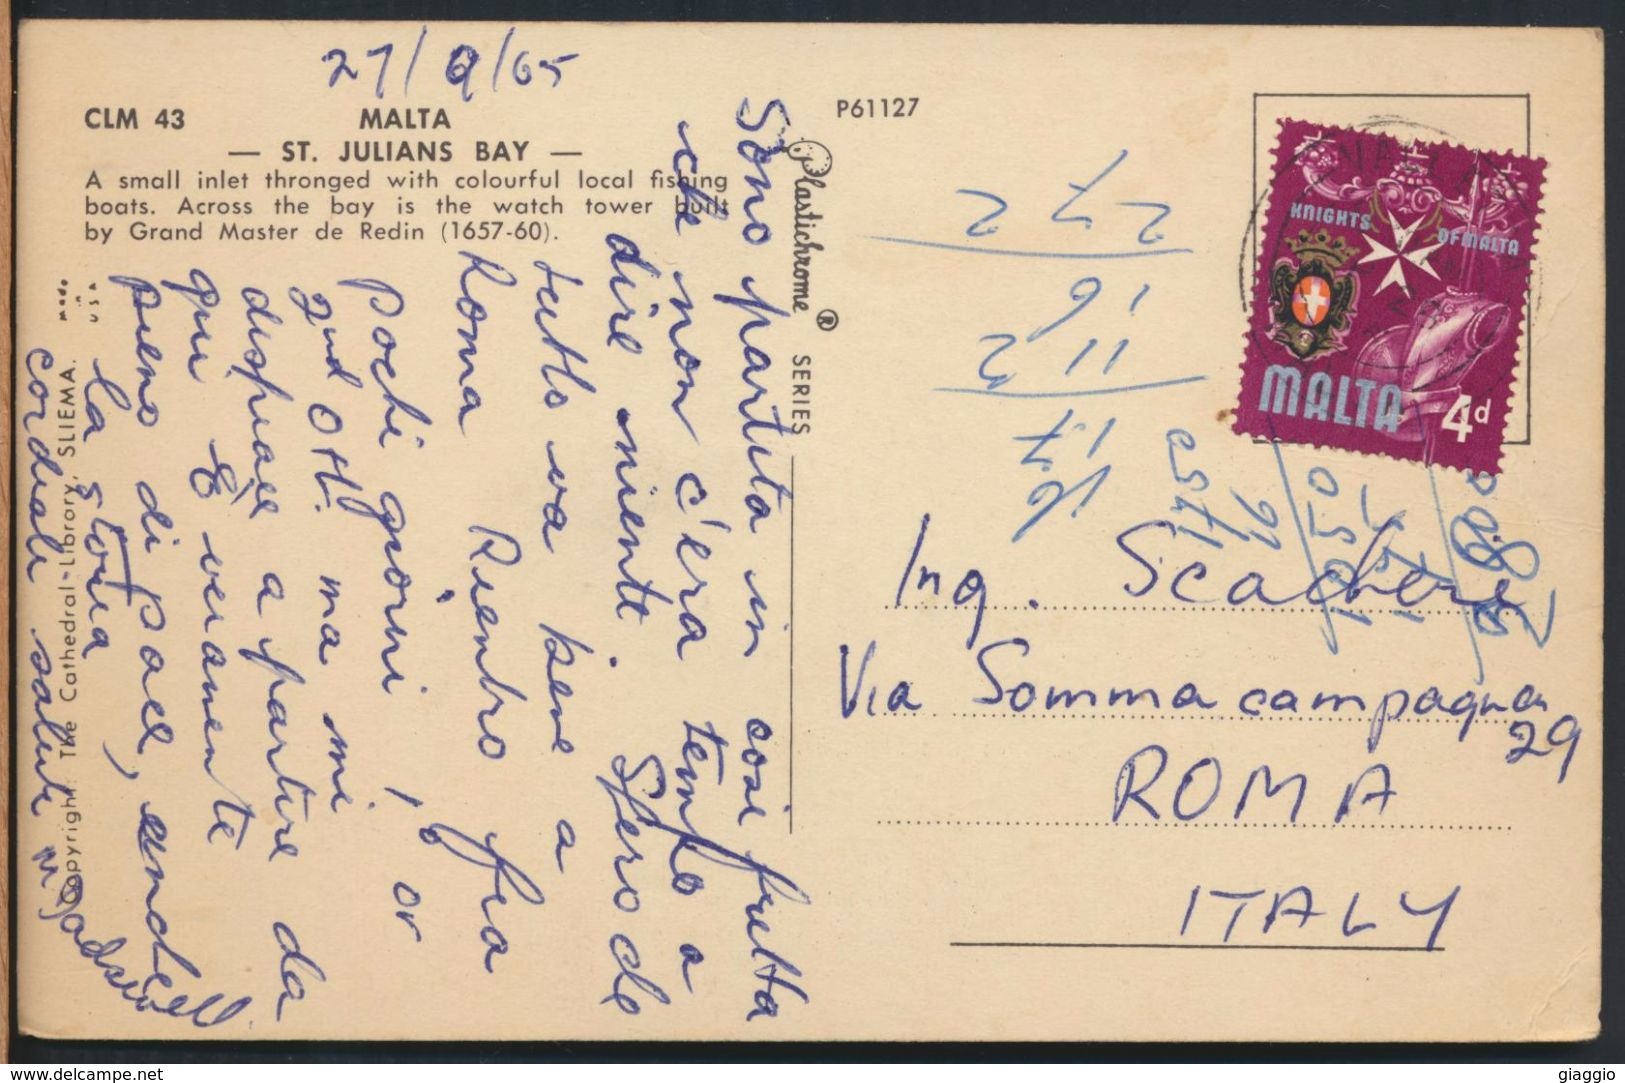 27/9/65
CLM 43
MALTA
— ST. JULIANS BAY —
A small inlet thronged with colourful local fishing
boats. Across the bay is the watch tower built
by Grand Master de Redin (1657-60).
Made
in
USA
Copyright: The Cathedral Library, SLIEMA.
P61127
Plastichrome ® SERIES
Sono partita in così fretta
che non c'era tempo a
dire niente. Spero che
tutto va bene a
Roma Rientro fra
pochi giorni, 1 or
2nd Ott. ma mi
dispiace a partire da
qui E veramente
pieno di pace, anche
la storia
cordiali saluti
KNIGHTS
OF MALTA
MALTA
4d
MALTA
272
16
112
17
1752
16
Ing. Scacheri
Via Sommacampagna
29
ROMA
ITALY
www.delcampe.net
giaggio